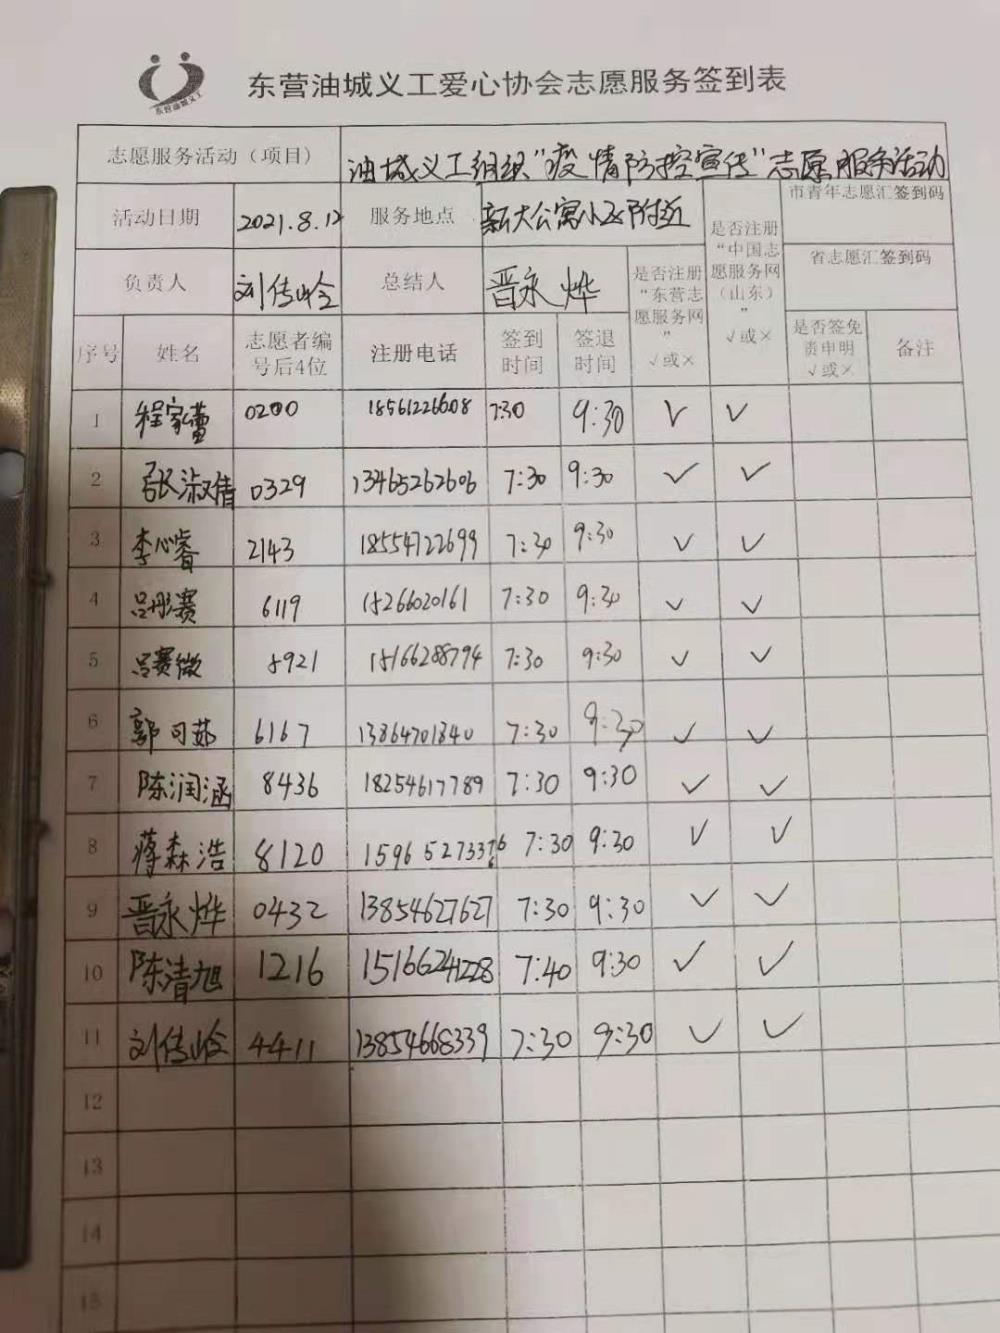 东营油城义工
东营油城义工爱心协会志愿服务签到表
志愿服务活动（项目） 油城义工组织“疫情防控宣传”志愿服务活动
活动日期 2021.8.12 服务地点 新大公寓小区附近
市青年志愿汇签到码
负责人 刘传岭 总结人 晋永烨
省志愿汇签到码
序号 姓名 志愿者编号后4位 注册电话 签到时间 签退时间 是否注册“东营志愿服务网” √或× 是否注册“中国志愿服务网（山东）” √或× 是否签免责申明 √或× 备注
1 程家蕾 0200 18561226608 7:30 9:30 √ √
2 张淑倩 0329 13465262606 7:30 9:30 √ √
3 李心睿 2143 18554722699 7:30 9:30 √ √
4 吕彤赛 6119 15266020161 7:30 9:30 √ √
5 吕赛微 5921 15166288794 7:30 9:30 √ √
6 郭可茹 6167 13864701840 7:30 9:30 √ √
7 陈润涵 8436 18254617789 7:30 9:30 √ √
8 蒋森浩 8120 1596527337 7:30 9:30 √ √
9 晋永烨 0432 13854627627 7:30 9:30 √ √
10 陈清旭 1216 15166241228 7:40 9:30 √ √
11 刘传岭 4411 13854668339 7:30 9:30 √ √
12
13
14
15